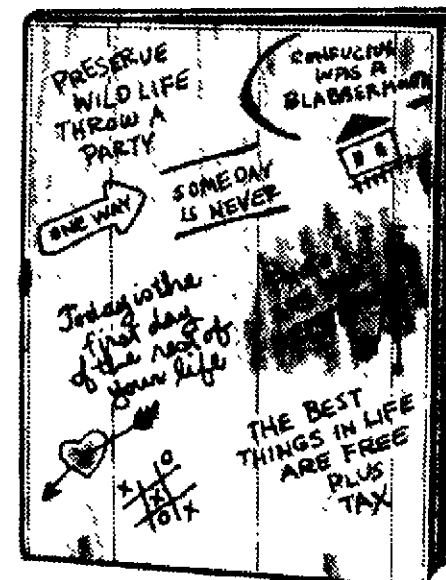 PRESERVE
WILD LIFE
THROW A
PARTY
CONFUCIUS
WAS A
BLABBERMOUTH
ONE WAY
SOMEDAY
IS NEVER
Today is the
first day
of the rest of
your life
THE BEST
THINGS IN LIFE
ARE FREE
PLUS
TAX
O
X X
O X